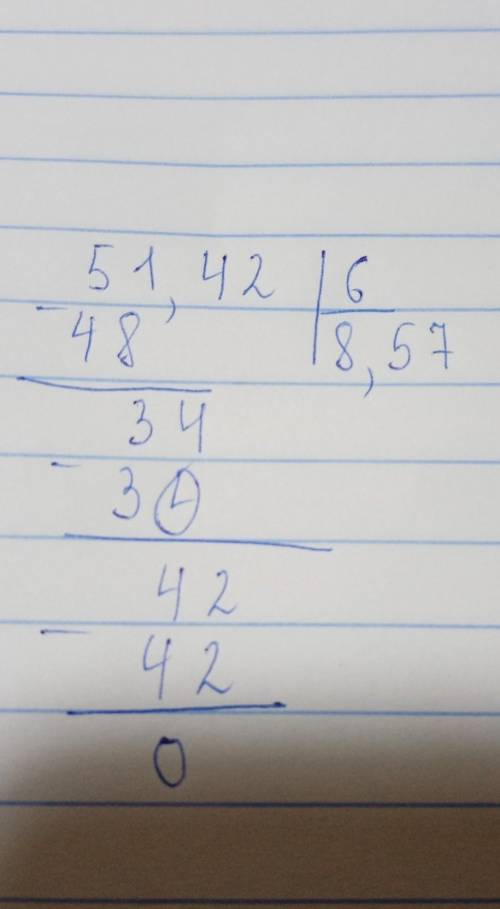 51,42 | 6
- 48 | 8,57
34
- 30
42
- 42
0